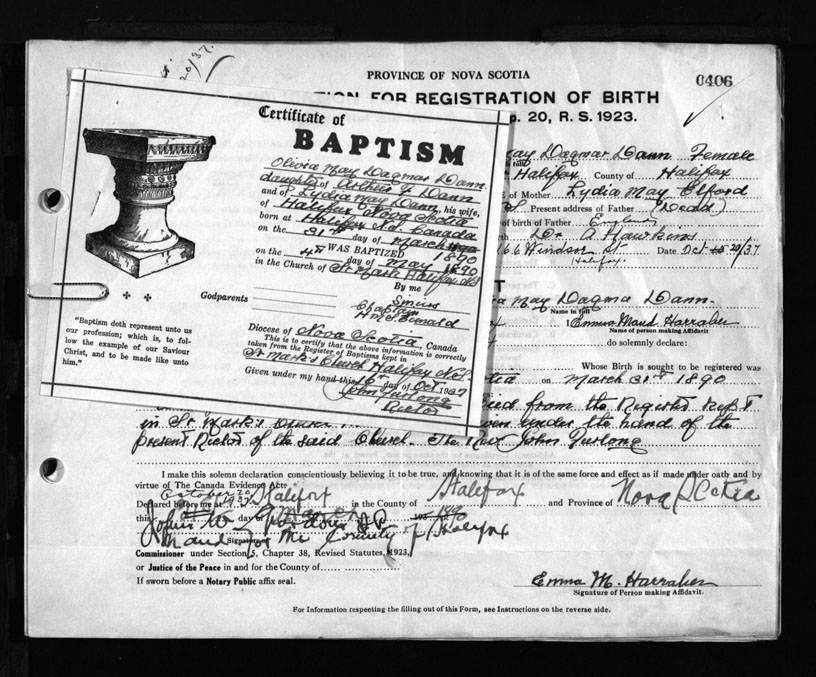 20/37.
PROVINCE OF NOVA SCOTIA
0406
TION FOR REGISTRATION OF BIRTH
p. 20, R. S. 1923.
Certificate of
BAPTISM
Olivia May Dagmar Dann
daughter of Arthur J Dann
and of Lydia May Dann, his wife,
of Halifax Nova Scotia
born at Halifax N.S. Canada
on the 31st day of March 1890
WAS BAPTIZED
on the 4th day of May 1890
in the Church of St Mark Halifax NS
By me
Smius
Godparents
Chaplain
H.M.S. Emerald
Diocese of Nova Scotia, Canada
This is to certify that the above information is correctly
taken from the Register of Baptisms kept in
St Mark's Church Halifax N.S.
Given under my hand this 16th day of Oct 1937
John Furlong
Rector
"Baptism doth represent unto us
our profession; which is, to fol-
low the example of our Saviour
Christ, and to be made like unto
him."
May Dagmar Dann Female
Halifax County of Halifax
of Mother Lydia May Elford
Present address of Father (Dead)
of birth of Father England
Dr A Hawkins
166 Windsor St Date Oct 20/37.
Halifax
May Dagma Dann
Name in full
Emma Maud Harraher
Name of person making Affidavit
do solemnly declare:
Whose Birth is sought to be registered was
on March 31st 1890
from the Register Kept
in St. Mark's Church under the hand of the
present Rector of the said Church. The Revd John Furlong
I make this solemn declaration conscientiously believing it to be true, and knowing that it is of the same force and effect as if made under oath and by
virtue of The Canada Evidence Act.
October 20
1937
Declared before me at Halifax in the County of Halifax and Province of Nova Scotia
this day of 193
John W.
and for the County of Halifax
Signature
Commissioner under Section 5, Chapter 38, Revised Statutes, 1923,
or Justice of the Peace in and for the County of
If sworn before a Notary Public affix seal.
Emma M. Harraher
Signature of Person making Affidavit.
For Information respecting the filling out of this Form, see Instructions on the reverse side.